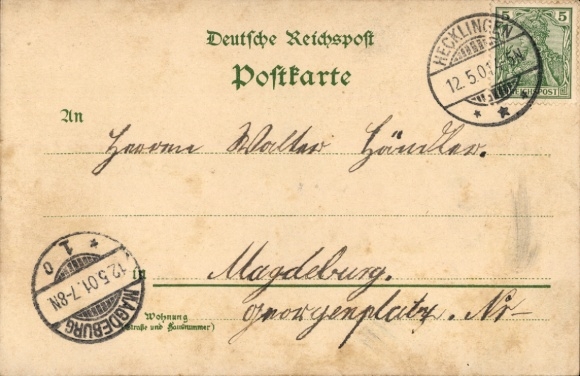 Deutsche Reichspost
Postkarte
5 5
REICHSPOST
HECKLINGEN
12.5.01
An
Herren Walter Händler.
in Magdeburg.
Georgenplatz. Nr
Wohnung
(Straße und Hausnummer)
MAGDEBURG
12.5.01.7-8N.
* 1 0